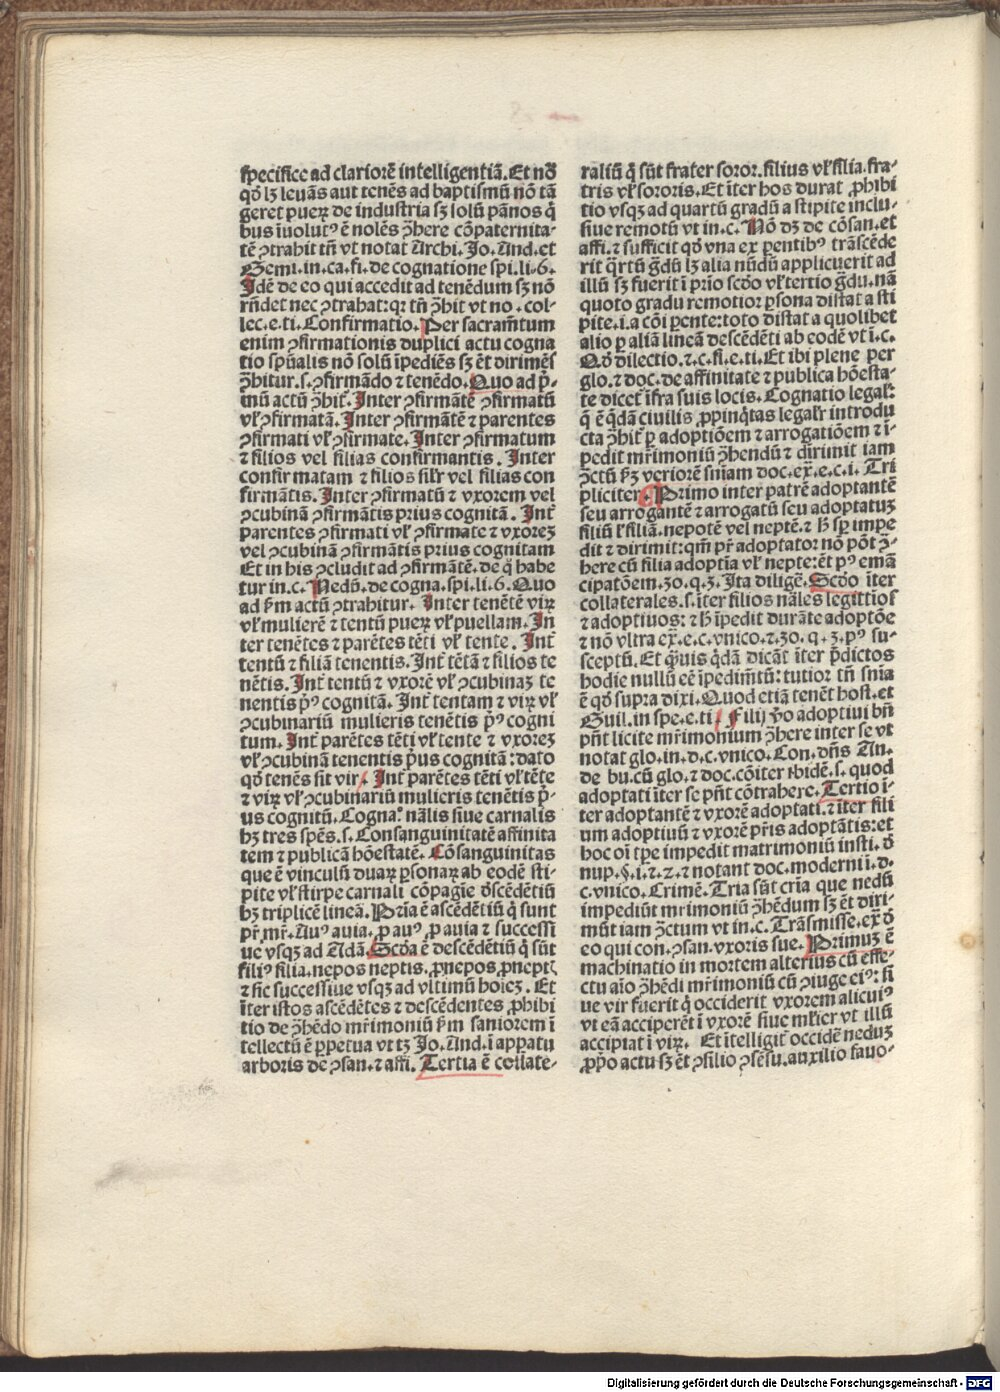 specifice ad clariorē intelligentiā. Et nō
qđ lꝫ leuās aut tenēs ad baptismū nō tā
geret pueꝝ de industria sꝫ solū pānos q̄
bus īuolutꝰ ē nolēs ꝯ̄here cōpaternita-
tē ꝯtrahit tn̄ vt notat Archi. Jo. And. et
Gemi. in. ca. fi. de cognatione spi. li. 6.
Idē de eo qui accedit ad tenēdum sꝫ nō
rn̄det nec ꝯtrahat: qꝛ tn̄ ꝯ̄hit vt no. col-
lec. e. ti. Confirmatio. Per sacram̄tum
enim ꝯfirmationis duplici actu cogna
tio spūalis nō solū īpediēs sꝫ ēt dirimēs
ꝯ̄hitur. s. ꝯfirmādo ⁊ tenēdo. Quo ad p̄-
mū actū ꝯ̄hit᷑. Inter ꝯfirmātē ꝯfirmatū
vl̓ ꝯfirmatā. Inter ꝯfirmātē ⁊ parentes
ꝯfirmati vl̓ ꝯfirmate. Inter ꝯfirmatum
⁊ filios vel filias confirmantis. Inter
confirmatam ⁊ filios sil̓r vel filias con
firmātis. Inter ꝯfirmatū ⁊ vxorem vel
ꝯcubinā ꝯfirmātis prius cognitā. Int᷑
parentes ꝯfirmati vl̓ ꝯfirmate ⁊ vxoreꝫ
vel ꝯcubinā ꝯfirmātis prius cognitam
Et in his ꝯcludit ad ꝯfirmātē. de q̄ habe
tur in. c. Nedū. de cogna. spi. li. 6. Quo
ad p̄m actū ꝯtrahitur. Inter tenētē viꝝ
vl̓ mulierē ⁊ tentū pueꝝ vl̓ puellam. In
ter tenētes ⁊ parētes tēti vl̓ tente. Int᷑
tentū ⁊ filiā tenentis. Int᷑ tētā ⁊ filios te
nētis. Int᷑ tentū ⁊ vxorē vl̓ ꝯcubinaꝫ te
nentis p̄ꝰ cognitā. Int᷑ tentam ⁊ viꝝ vl̓
ꝯcubinariū mulieris tenētis p̄ꝰ cogni
tum. Int᷑ parētes tēti vl̓ tente ⁊ vxoreꝫ
vl̓ ꝯcubinā tenentis p̄us cognitā: dato
qđ tenēs sit vir. Int᷑ parētes tēti vl̓ tēte
⁊ viꝝ vl̓ ꝯcubinariū mulieris tenētis p̄-
us cognitū. Cogna.º nālis siue carnalis
hꝫ tres spēs. s. Consanguinitatē affinita
tem ⁊ publicā hōestatē. Cōsanguinitas
que ē vinculū duaꝝ ꝑsonaꝝ ab eodē sti-
pite vl̓ stirpe carnali cōpagīe d̓scēdētiū
hꝫ triplicē lineā. Pria ē ascēdētiū q̄ sunt
pr̄. mr̄. Auꝰ auia. ꝓauꝰ ꝓauia ⁊ successi
ue vsqꝫ ad Adā. Scđa ē descēdētiū q̄ sūt
filiꝰ filia. nepos neptis. ꝓnepos. ꝓneptꝭ
⁊ sic successiue vsqꝫ ad vltimū hoieꝫ. Et
īter istos ascēdētes ⁊ descēdentes ꝓhibi
tio de ꝯ̄hēdo mr̄imoniū p̄m saniorem ī
tellectū ē ꝑpetua vt tꝫ Jo. And. ī appatu
arboris de ꝯsan. ⁊ affi. Tertia ē collate-
raliū q̄ sūt frater soror. filius vl̓ filia. fra-
tris vl̓ sororis. Et īter hos durat ꝓhibi
tio vsqꝫ ad quartū gradū a stipite inclu-
siue remotū vt in. c. Nō dꝫ de cōsan. et
affi. ⁊ sufficit qđ vna ex ꝑentibꝰ trāscēde
rit q̄rtū ḡdū lꝫ alia nūdū applicuerit ad
illū sꝫ fuerit ī prio scđo vl̓ tertio ḡdu. nā
quoto gradu remotior ꝑsona distat a sti
pite. i. a cōi ꝑente: toto distat a quolibet
alio ꝑ aliā lineā descēdēti ab eodē vt ī. c.
Qđ dilectio. ⁊. c. fi. e. ti. Et ibi plene per
glo. ⁊ doc. de affinitate ⁊ publica hōesta-
te dicet᷑ īfra suis locis. Cognatio legal̓:
q̄ ē q̄dā ciuilis ꝓpinq̄tas legal̓r introdu
cta ꝯ̄hit᷑ ꝑ adoptiōem ⁊ arrogatiōem ⁊ ī-
pedit mr̄imoniū ꝯ̄hendū ⁊ dirimit iam
ꝯ̄ctū p̄ꝫ veriorē sniam doc. ex̄. e. c. i. Tri
pliciter. Primo inter patrē adoptantē
seu arrogantē ⁊ arrogatū seu adoptatuꝫ
filiū l̓ filiā. nepotē vel neptē. ⁊ h̄ sp̄ impe
dit ⁊ dirimit: qm̄ pr̄ adoptator nō pōt ꝯ̄-
here cū filia adoptīa vl̓ nepte: ēt pꝰ emā
cipatōem. 30. q. 3. Ita diligē. Scđo īter
collaterales. s. īter filios nāles legittios
⁊ adoptiuos: ⁊ h̄ īpedit durāte adoptōe
⁊ nō vltra ex̄. e. c. vnico. ⁊. 30. q. 3. pꝰ su-
sceptū. Et q̄uis q̄dā dicāt īter p̄dictos
hodie nullū eē īpedim̄tū: tutior tn̄ snīa
ē qđ supra dixi. Quod etiā tenēt host. et
Guil. in spe. e. ti. Filij v̓o adoptiui bn̄
pn̄t licite mr̄imonium ꝯ̄here inter se vt
notat glo. in. d. c. vnico. Con. dn̄s An.
de bu. cū glo. ⁊ doc. cōiter ibidē. s. quod
adoptati īter se pn̄t cōtrahere. Tertio ī-
ter adoptantē ⁊ vxorē adoptati. ⁊ īter fili
um adoptiuū ⁊ vxorē pr̄is adoptātis: et
hoc oī tꝑe impedit matrimoniū insti. d̓
nup. §. i. ⁊. 2. ⁊ notant doc. moderni ī. d.
c. vnico. Crimē. Tria sūt cr̄ia que nedū
impediūt mr̄imoniū ꝯ̄hēdum sꝫ ēt diri-
mūt iam ꝯ̄ctum vt in. c. Trāsmisse. ex̄ d̓
eo qui con. ꝯsan. vxoris sue. Primuꝫ ē
machinatio in mortem alterius cū effe-
ctu aīo ꝯ̄hēdi mr̄imoniū cū ꝯiuge eiꝰ: si
ue vir fuerit q̄ occiderit vxorem alicuiꝰ
vt eā acciperēt ī vxorē siue ml̓ier vt illū
accipiat ī viꝝ. Et ītelligit᷑ occidē neduꝫ
ꝓp̄o actu sꝫ ēt ꝯsilio ꝯsēsu. auxilio fauo-
Digitalisierung gefördert durch die Deutsche Forschungsgemeinschaft - DFG